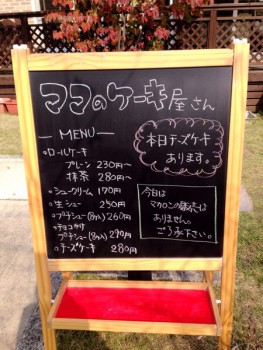 ママのケーキ屋さん
— MENU —
•ロールケーキ
プレーン 230円〜
抹茶 280円〜
•シュークリーム 190円
•生シュー 250円
•プチシュー(8ヶ入) 260円
•チョコがけ
プチシュー(8ヶ入) 290円
•チーズケーキ 280円
本日チーズケーキ
あります。
今日は
マカロンの販売は
ありません。
ご了承下さい。